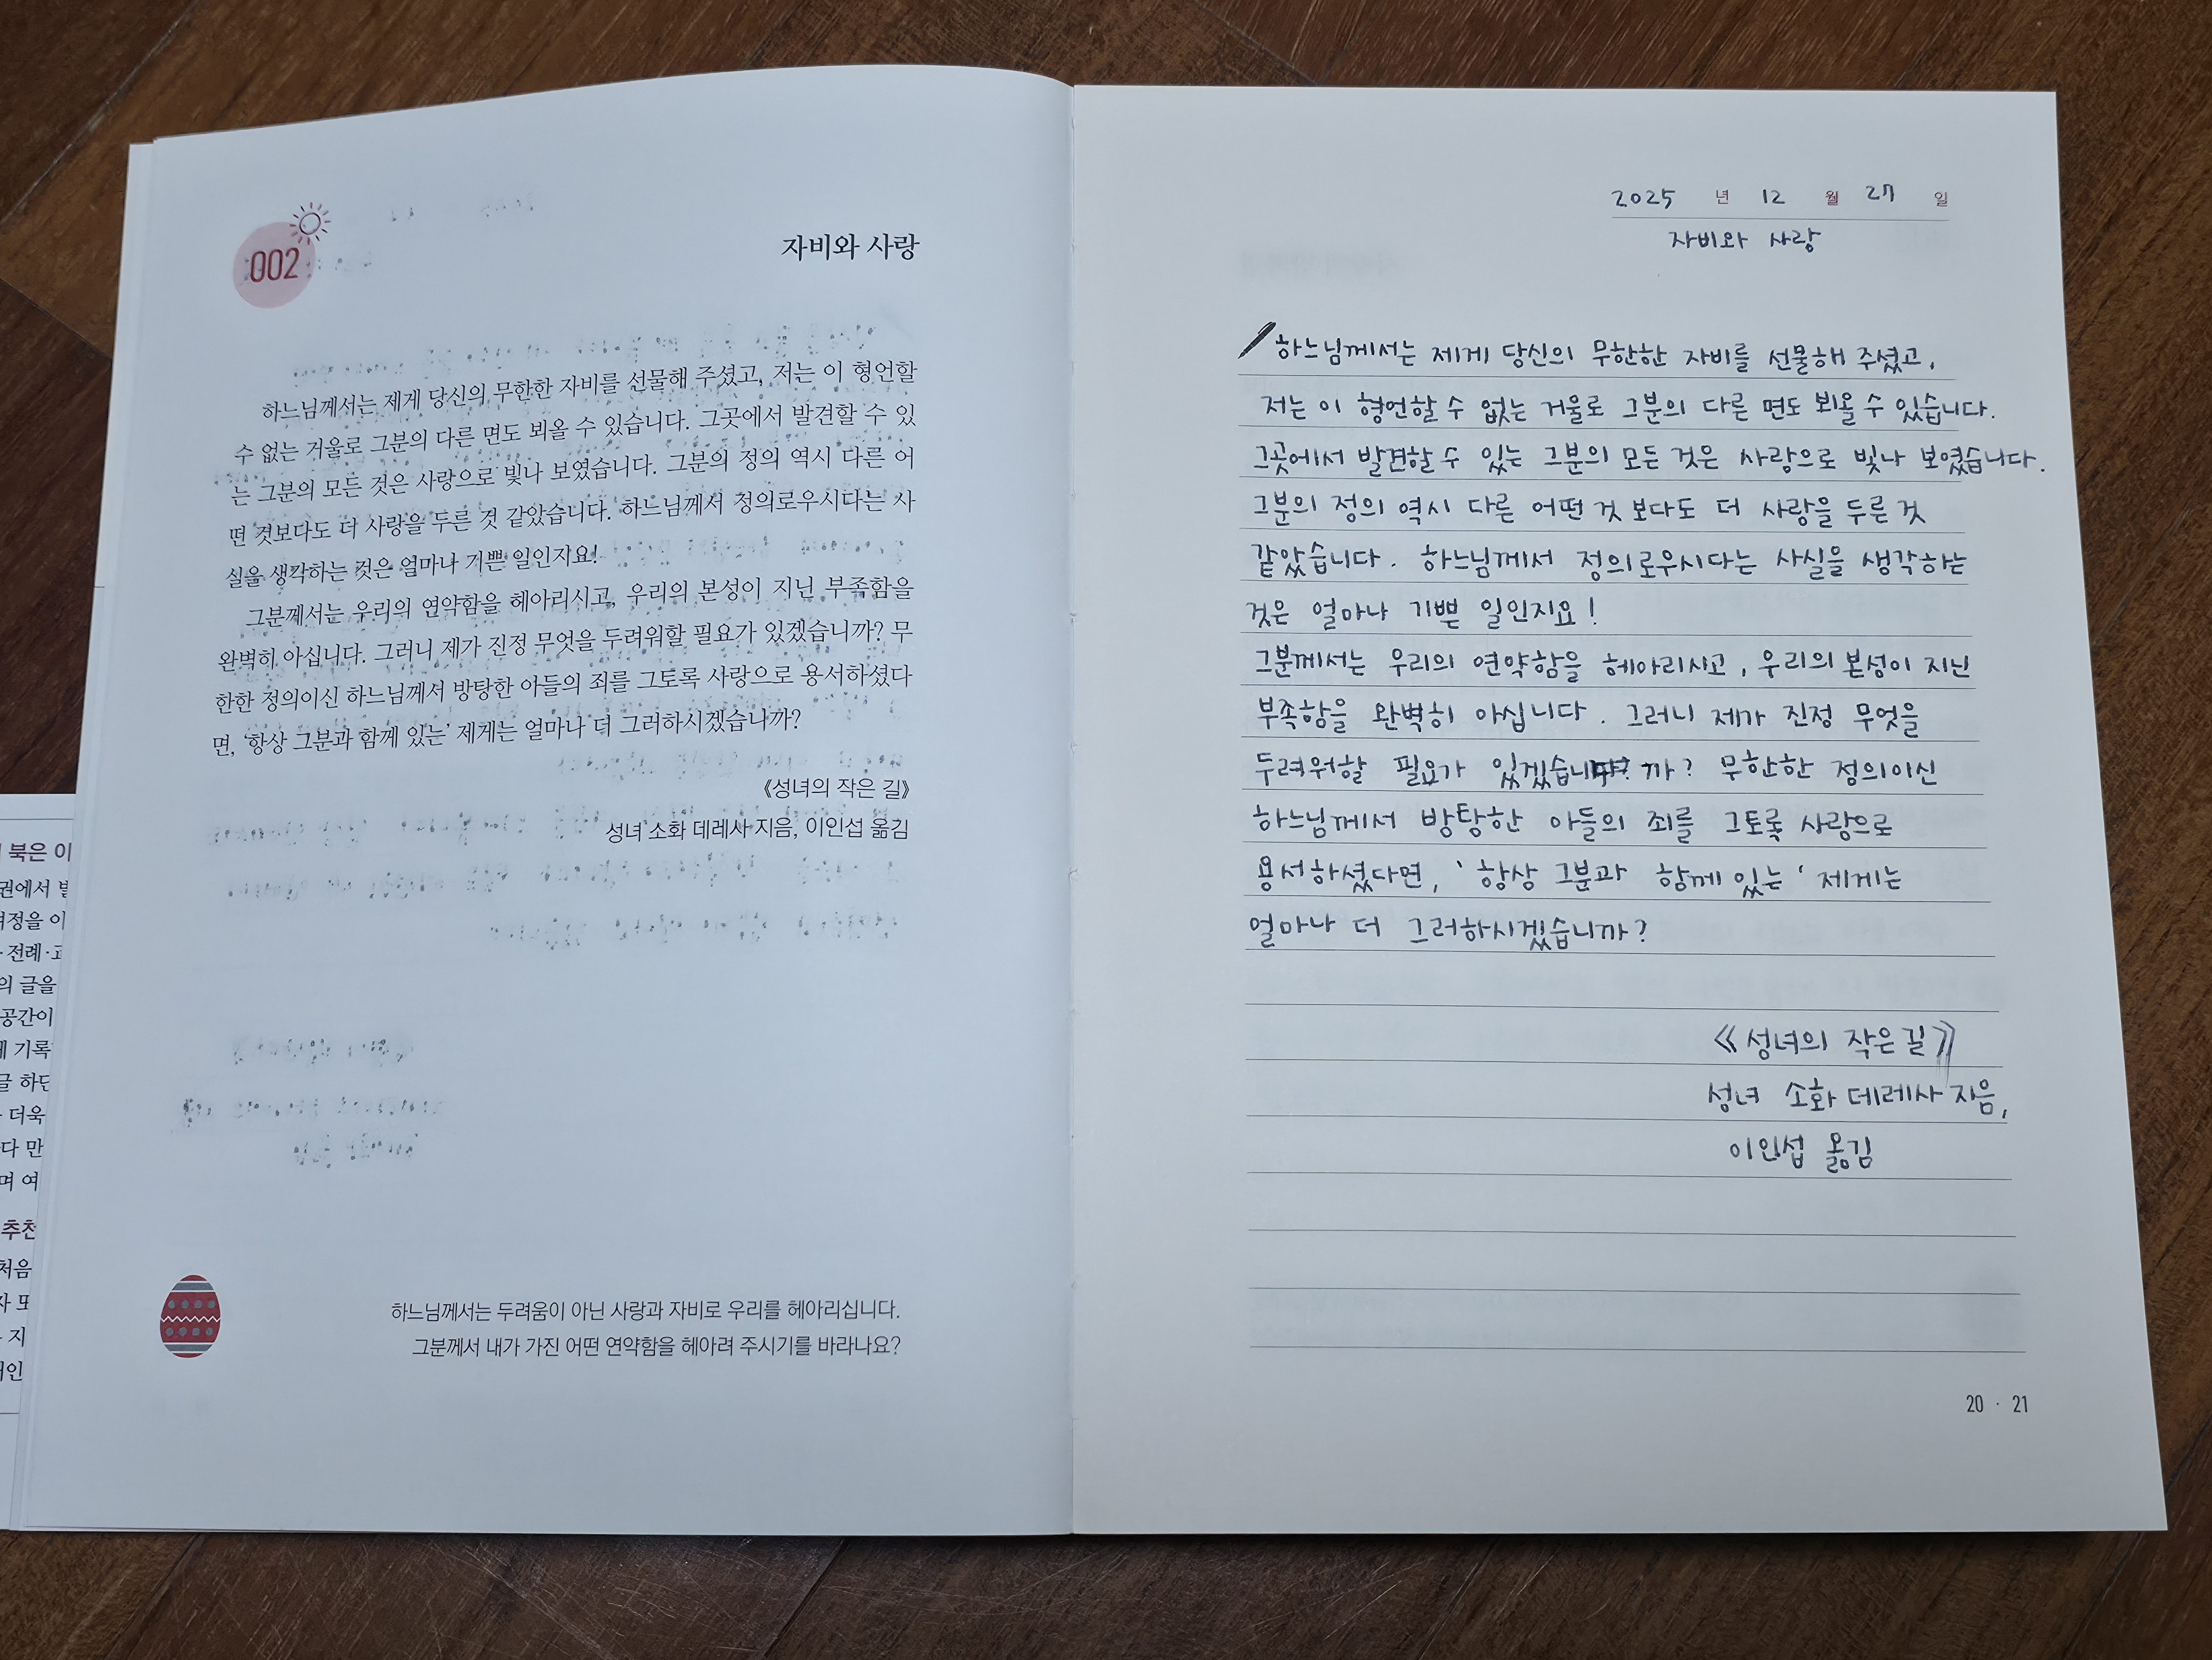 002
자비와 사랑
하느님께서는 제게 당신의 무한한 자비를 선물해 주셨고, 저는 이 형언할
수 없는 거울로 그분의 다른 면도 뵈올 수 있습니다. 그곳에서 발견할 수 있
는 그분의 모든 것은 사랑으로 빛나 보였습니다. 그분의 정의 역시 다른 어
떤 것보다도 더 사랑을 두른 것 같았습니다. 하느님께서 정의로우시다는 사
실을 생각하는 것은 얼마나 기쁜 일인지요!
그분께서는 우리의 연약함을 헤아리시고, 우리의 본성이 지닌 부족함을
완벽히 아십니다. 그러니 제가 진정 무엇을 두려워할 필요가 있겠습니까? 무
한한 정의이신 하느님께서 방탕한 아들의 죄를 그토록 사랑으로 용서하셨다
면, ‘항상 그분과 함께 있는’ 제게는 얼마나 더 그러하시겠습니까?
《성녀의 작은 길》
성녀 소화 데레사 지음, 이인섭 옮김
하느님께서는 두려움이 아닌 사랑과 자비로 우리를 헤아리십니다.
그분께서 내가 가진 어떤 연약함을 헤아려 주시기를 바라나요?
북은 이
권에서
여정을 이
전례·교
의 글을
공간이
기록
글 하단
더욱
다 만
며 여
추천
처음
자 또
지
2025 년 12 월 27 일
자비와 사랑
하느님께서는 제게 당신의 무한한 자비를 선물해 주셨고,
저는 이 형언할 수 없는 거울로 그분의 다른 면도 뵈올 수 있습니다.
그곳에서 발견할 수 있는 그분의 모든 것은 사랑으로 빛나 보였습니다.
그분의 정의 역시 다른 어떤 것 보다도 더 사랑을 두른 것
같았습니다. 하느님께서 정의로우시다는 사실을 생각하는
것은 얼마나 기쁜 일인지요!
그분께서는 우리의 연약함을 헤아리시고, 우리의 본성이 지닌
부족함을 완벽히 아십니다. 그러니 제가 진정 무엇을
두려워할 필요가 있겠습니까? 무한한 정의이신
하느님께서 방탕한 아들의 죄를 그토록 사랑으로
용서하셨다면, ‘항상 그분과 함께 있는‘ 제게는
얼마나 더 그러하시겠습니까?
《성녀의 작은 길》
성녀 소화 데레사 지음,
이인섭 옮김
20 · 21